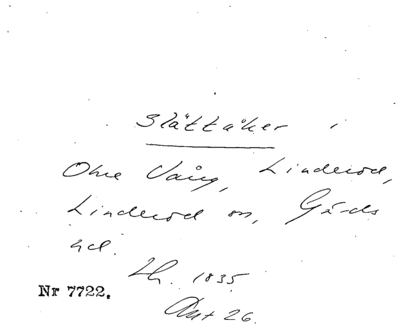 Slättåker
Ohre Vång, Linderöd,
Linderöd sn, Gärds
hd.
Lh. 1835
Akt 26.
Nr 7722.